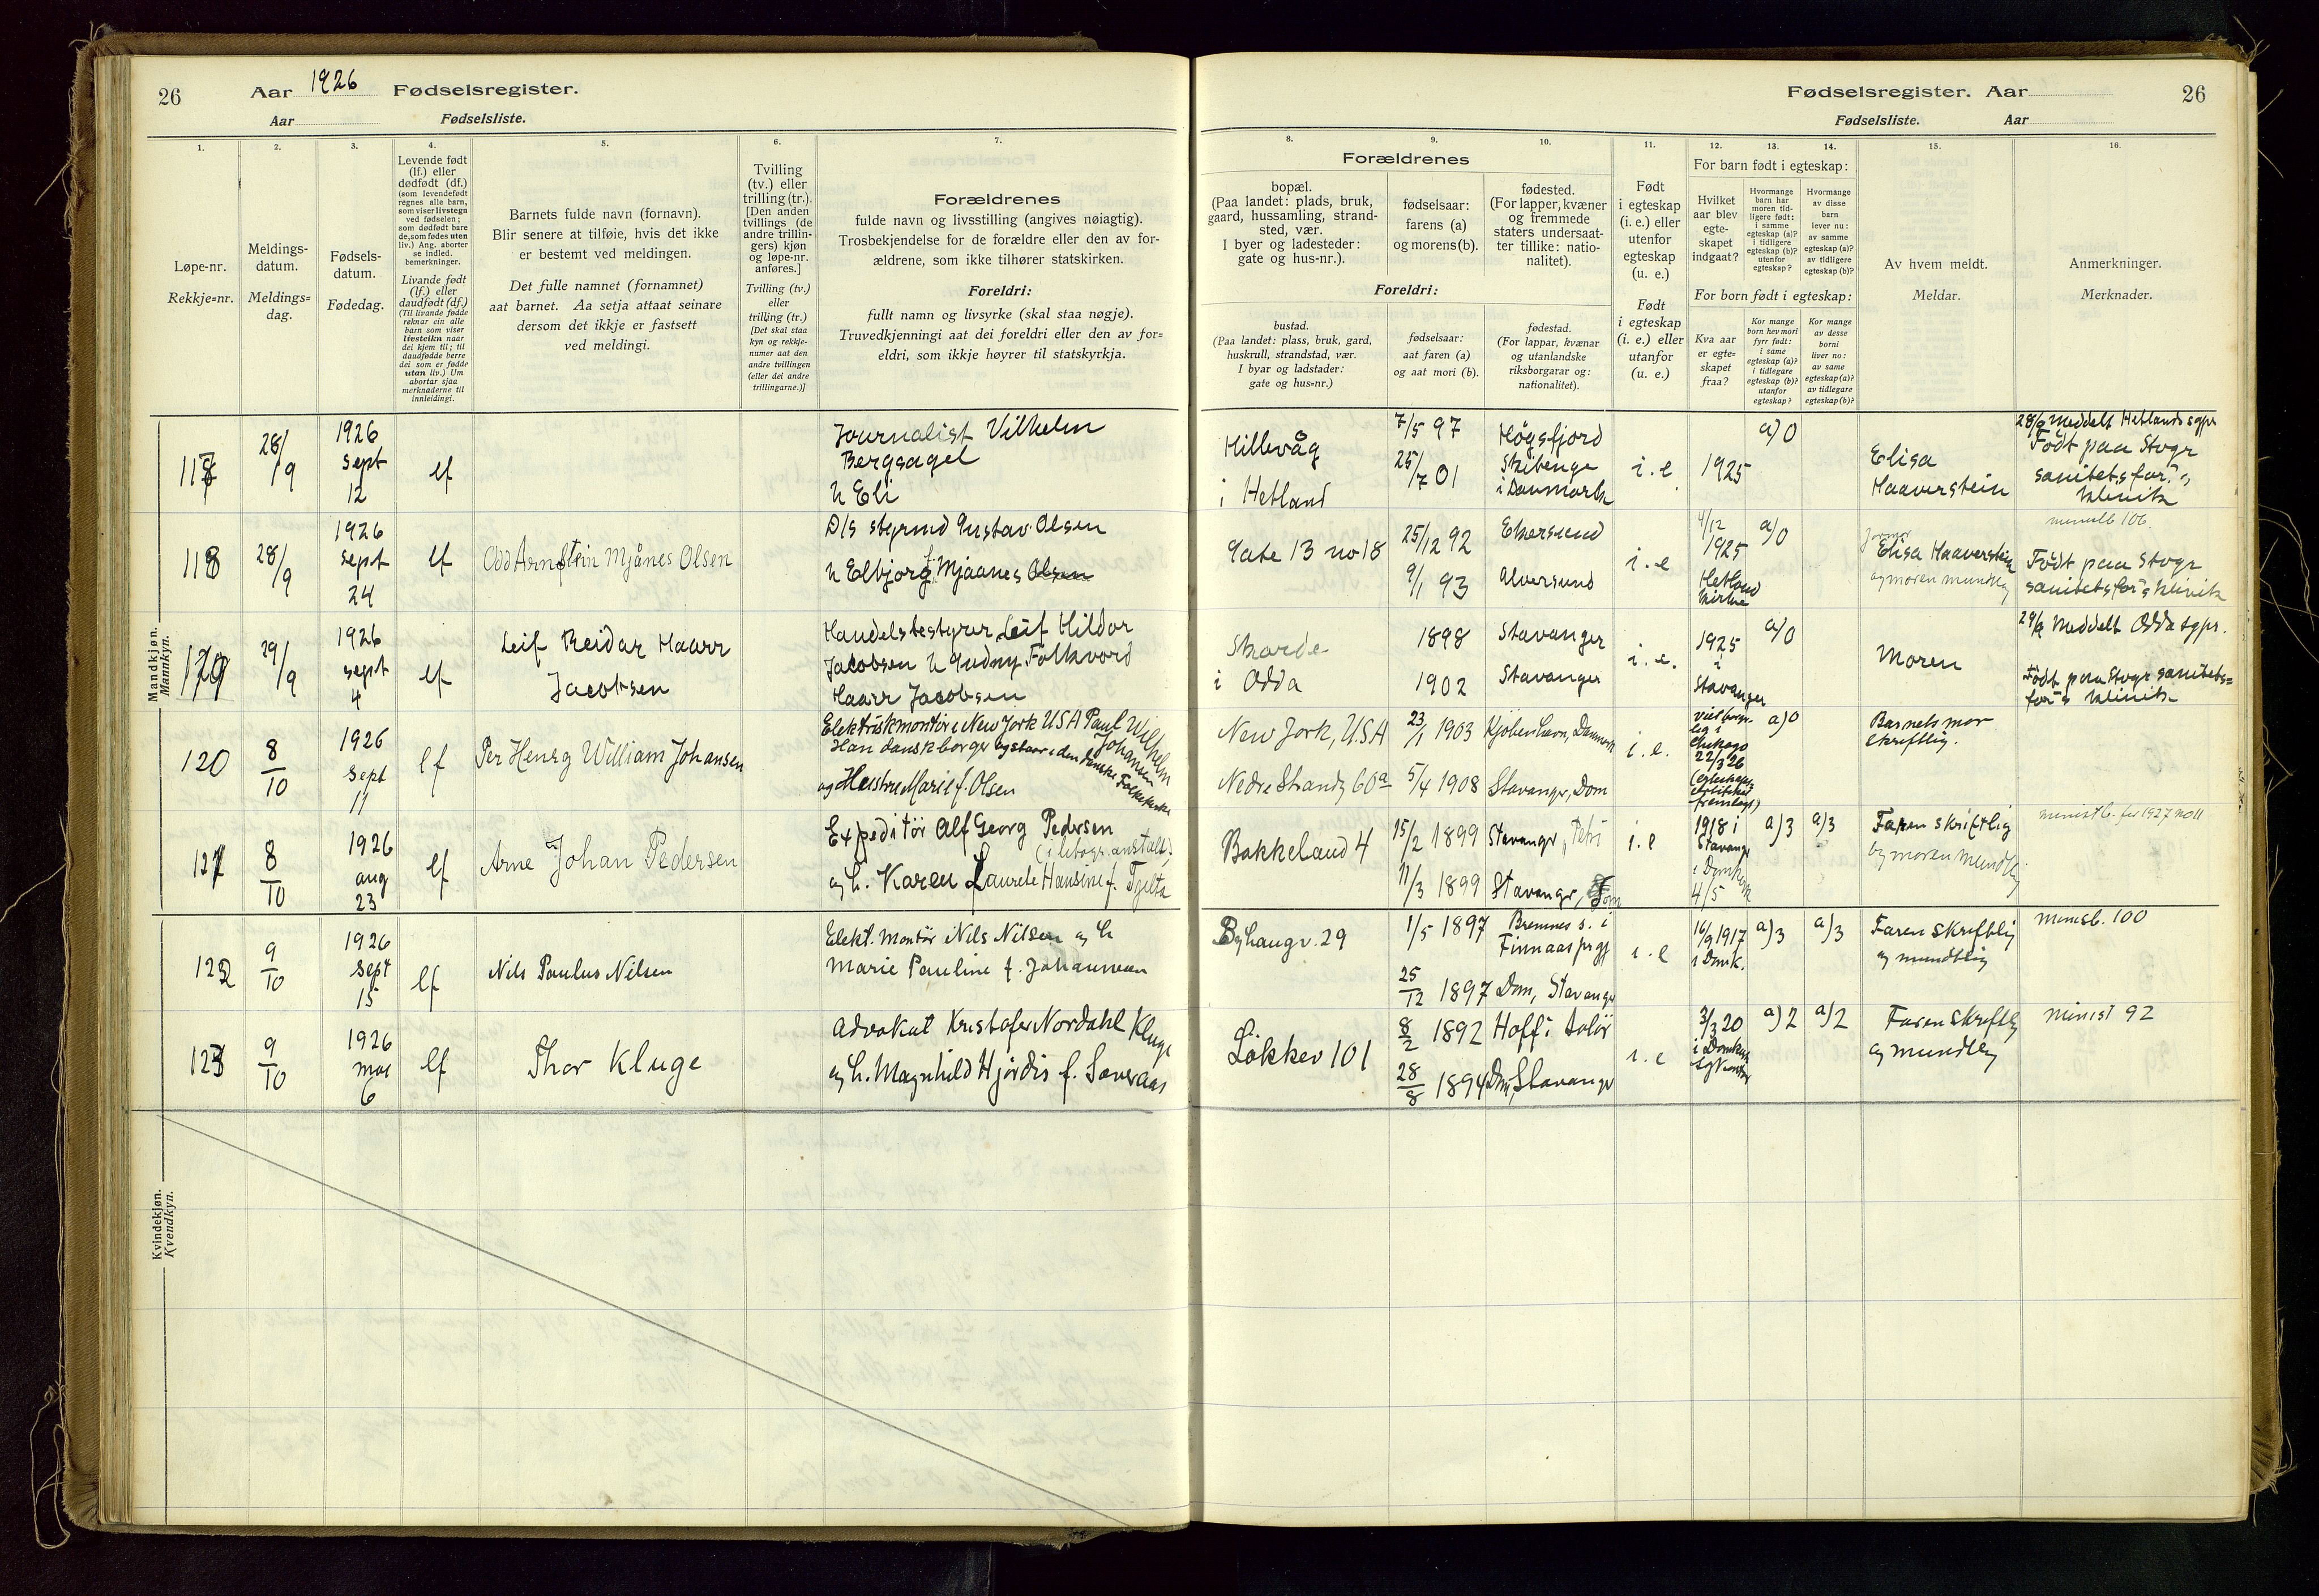 26
Aar 1926 Fødselsregister.
Aar Fødselsliste.
1.
2.
3.
4.
5.
6.
7.
Løpe-nr.
Rekkje=nr.
Meldings-
datum.
Meldings=
dag.
Fødsels-
datum.
Fødedag.
Levende født
(lf.) eller
dødfødt (df.)
(som levendefødt
regnes alle barn,
som viser livstegn
ved fødselen;
som dødfødt bare
de, som fødes uten
liv.) Ang. aborter
se indled.
bemerkninger.
Livande født
(lf.) eller
daudfødt (df.)
(Til livande fødde
reknar ein alle
barn som viser
livsteikn naar
dei kjem til; til
daudfødde berre
dei som er fødde
utan liv.) Um
abortar sjaa
merknaderne til
innleidingi.
Barnets fulde navn (fornavn).
Blir senere at tilføie, hvis det ikke
er bestemt ved meldingen.
Det fulle namnet (fornamnet)
aat barnet. Aa setja attaat seinare
dersom det ikkje er fastsett
ved meldingi.
Tvilling
(tv.) eller
trilling (tr.).
[Den anden
tvillings (de
andre trillin-
gers) kjøn
og løpe-nr.
anføres.]
Tvilling (tv.)
eller
trilling (tr.)
[Det skal staa
kyn og rekkje-
numer aat den
andre tvillingen
(eller dei andre
trillingarne.)]
Forældrenes
fulde navn og livsstilling (angives nøiagtig).
Trosbekjendelse for de forældre eller den av for-
ældrene, som ikke tilhører statskirken.
Foreldri:
fullt namn og livsyrke (skal staa nøgje).
Truvedkjenningi aat dei foreldri eller den av for=
eldri, som ikkje høyrer til statskyrkja.
Mandkjøn.
Mannkyn.
28/9
1926
Sept
12
lf
Journalist Vilhelm
Bergsagel
h Eli
118
28/9
1926
Sept
24
lf
Odd Arnstein Mjånes Olsen
D/S styrmd Gustav Olsen
h Elbjorg f. Mjaanes Olsen
29/9
1926
Sept
4
lf
Leif Reidar Haarr
Jacobsen
Handelsbestyrer Leif Hildor
Jacobsen h Gudny Folkvord
Haarr Jacobsen
120
8/10
1926
Sept
11
lf
Per Henry William Johansen
Elektriskmontør i New Jork USA Paul Wilhelm
Johansen
Han dansk borger og staar i den danske Folkekirke
og Hustru Marie f. Olsen
121
8/10
1926
aug
23
lf
Arne Johan Pedersen
Expeditør Alf Georg Pedersen
og h. Karen Laurete Hansine f. Tjelta
122
9/10
1926
Sept
15
lf
Nils Paulus Nilsen
Elekt. montør Nils Nilsen og h
Marie Pauline f. Johannesen
123
9/10
1926
mai
6
lf
Thor Kluge
Advokat Kristofer Nordahl Kluge
og h. Magnhild Hjørdis f. Soveraas
Kvindekjøn.
Kvendkyn.
Fødselsregister. Aar
26
Fødselsliste. Aar
8.
9.
10.
11.
12.
13.
14.
15.
16.
Forældrenes
bopæl.
(Paa landet: plads, bruk,
gaard, hussamling, strand-
sted, vær.
I byer og ladesteder:
gate og hus-nr.).
fødselsaar:
farens (a)
og morens (b).
fødested.
(For lapper, kvæner
og fremmede
staters undersaat-
ter tillike: natio-
nalitet).
Foreldri:
bustad.
(Paa landet: plass, bruk, gard,
huskrull, strandstad, vær.
I byar og ladstader:
gate og hus=nr.)
fødselsaar:
aat faren (a)
og aat mori (b).
fødestad.
(For lappar, kvænar
og utanlandske
riksborgarar og:
nationalitet).
Født
i egteskap
(i. e.) eller
utenfor
egteskap
(u. e.)
Født
i egteskap
(i. e.) eller
utanfor
(u. e.)
For barn født i egteskap:
Hvilket
aar blev
egte-
skapet
indgaat?
Hvormange
barn har
moren tid-
ligere født:
i samme
egteskap (a)?
i tidligere
egteskap (b)?
utenfor
egteskap?
Hvormange
av disse
barn
lever nu:
av samme
egteskap (a)?
av tidligere
egteskap (b)?
For born født i egteskap:
Kva aar
er egte-
skapet
fraa?
Kor mange
born hev mori
fyrr født:
i same
egteskap (a)?
i tidlegare
egteskap (b)?
utanfor
egteskap?
Kor mange
av desse
borni
liver no:
av same
egteskap (a)?
av tidlegare
egteskap (b)?
Av hvem meldt.
Meldar.
Anmerkninger.
Merknader.
Hillevåg
i Hetland
7/5 97
25/7 01
Høgsfjord
i Danmark
i. e.
1925
a) 0
Elisa
Haaverstein
28/9 Meddelt Hetland sgpr
Født paa Stvgr
sanitetsfor.s
klinik
Gate 13 no 18
25/12 92
9/1 93
Ekersund
Alversund
i. e
4/12
1925
Hetland
kirke
a) 0
Elisa Haaverstein
og moren mundtlig
ministb 106.
Født paa Stvgr
sanitetsfor.s klinik
Skarde
i Odda
1898
1902
Stavanger
Stavanger
i. e.
1925
i
Stavanger
a) 0
Moren
29/9 Meddelt Odda sgpr.
Født paa Stvgr sanitets=
for.s klinik
New Jork, USA
Nedre Strandg 60a
23/1 1903
5/4 1908
Kjøbenhavn, Danmark
Stavanger, Dom
i. e.
viet borger-
lig i
Chikago
22/3 26
a) 0
Barnets mor
skriftlig.
Bakkeland 4
15/2 1899
11/3 1899
Stavanger, Petri
Stavanger, Dom
i. e
1918 i
Stavanger
i Domkirk
4/5
a) 3
a) 3
Faren skriftlig
og moren mundtlig
ministb. for 1927 no 11
Byhaugv. 29
1/5 1897
25/12 1897
Bremnes s. i
Finnaas prgj
Dom, Stavanger
i. e
16/9 1917
i Domk.
a) 3
a) 3
Faren skriftlig
og mundtlig
minisb. 100
Løkkev 101
8/2 1892
28/8 1894
Hoff i Solør
Dom, Stavanger
i. e
3/3 20
a) 2
a) 2
Faren skriftlig
og mundtlig
minist 92